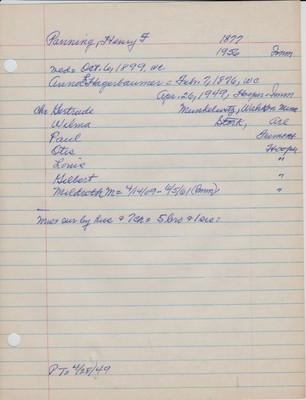 Panning, Henry F 1877
1956 Imm
med= Oct. 6, 1899, wc
Anna Hagerbaumer = Febr. 7, 1876, WC
Apr. 26, 1949, Hooper = Imm
Ch= Gertrude Munkelwitz,
Wilma Stork, Arl
Paul Fremont
Otis Hooper
Louis "
Gilbert "
Mildred M= 4/14/09 - 4/5/61
Mrs= sur by hus + 7ch + 5 bro + 1 sis =
P To 4/28/49